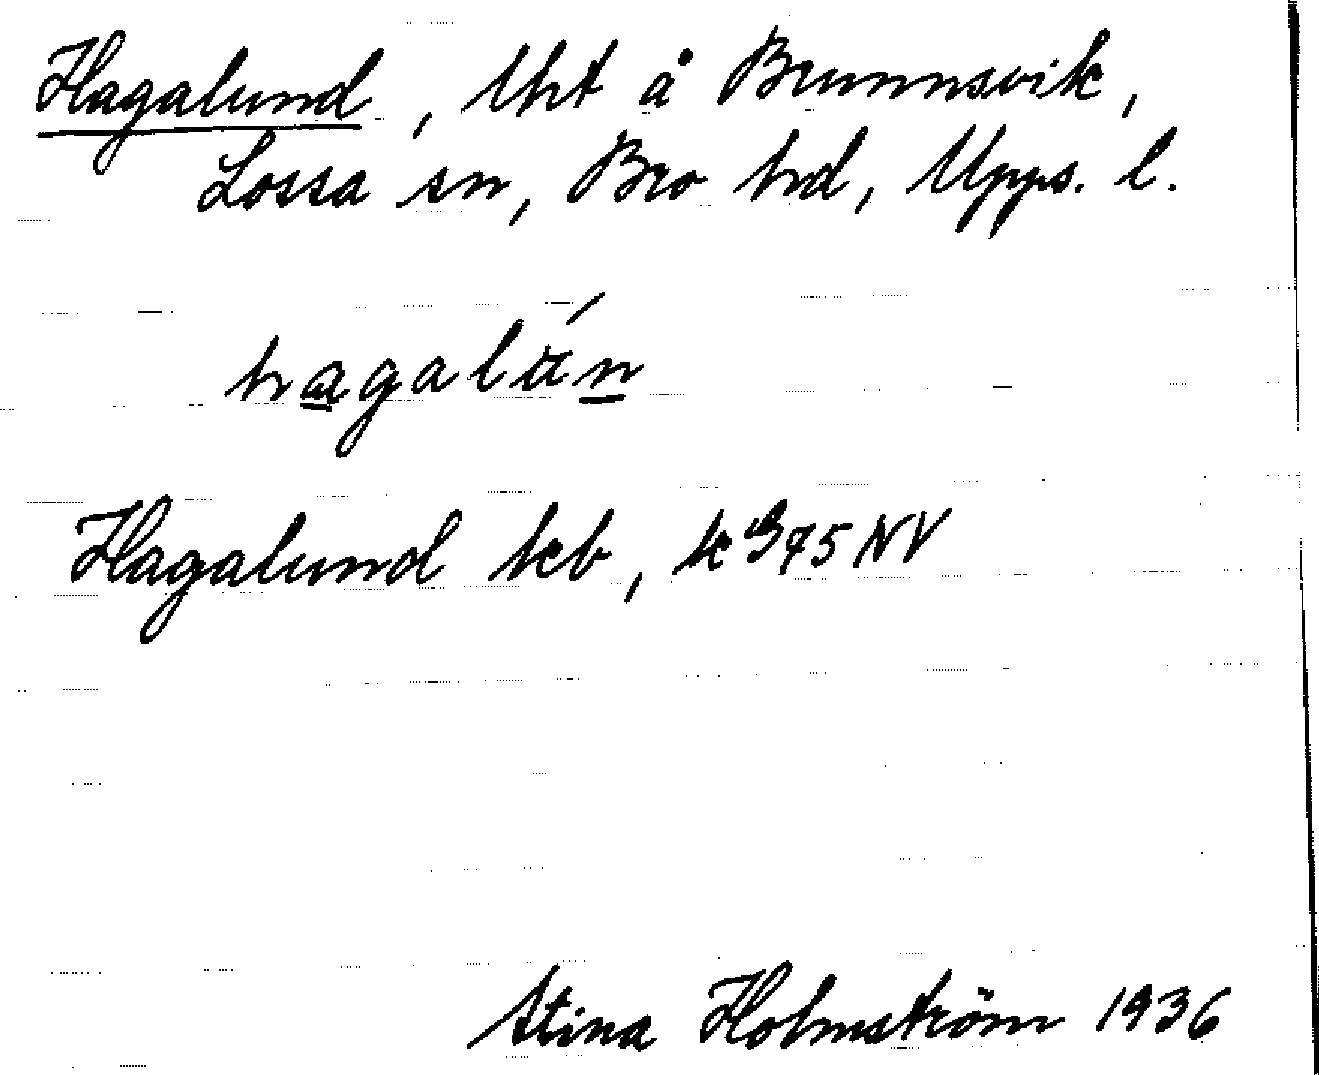 Hagalund, lht å Brunnsvik,
Lossa sn, Bro hd, Upps. l.
hagalún
Hagalund keb, k G 75 NV
Stina Holmström 1936